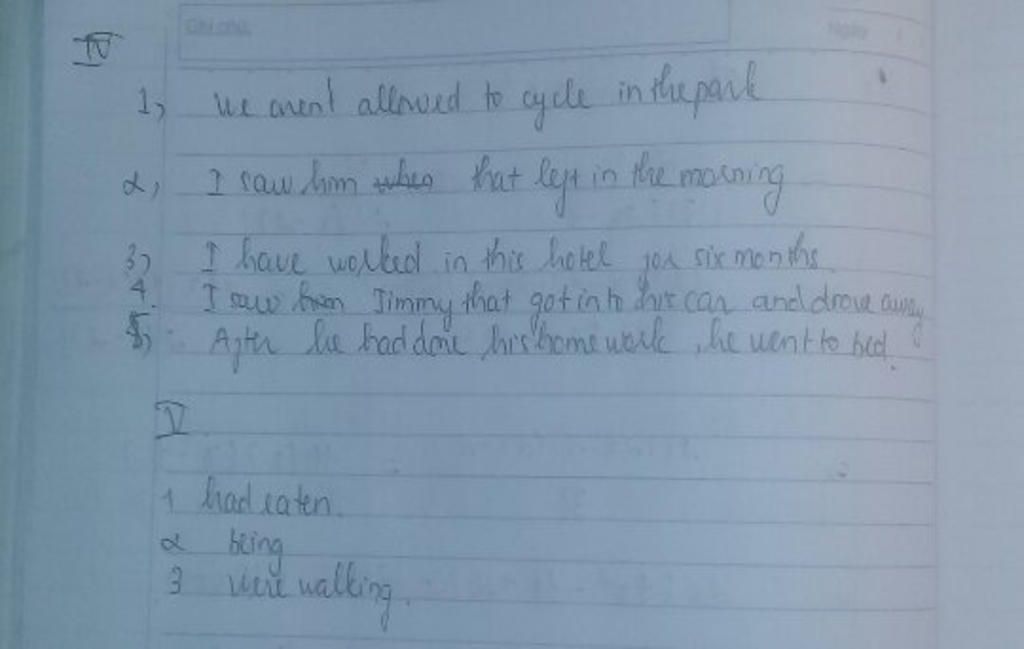 Ghi chú
Ngày
IV
1, We aren't allowed to cycle in the park
2, I saw him when that left in the morning
3, I have worked in this hotel for six months
4. I saw him Jimmy that got into his car and drove away
5, After he had done his homework, he went to bed.
V
1 had eaten.
2 being
3 were walking.